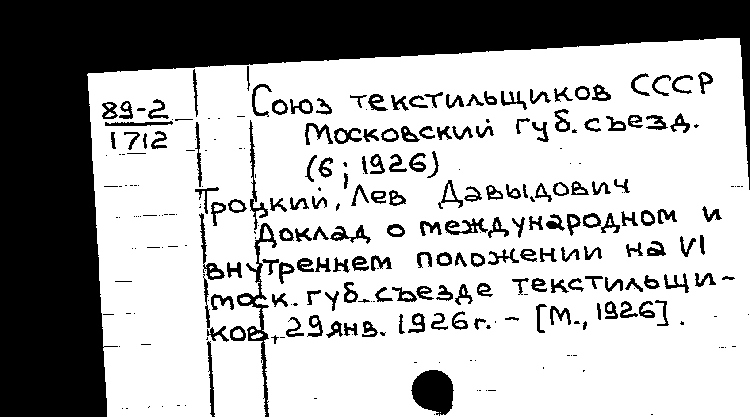 89-2
1712
Союз текстильщиков СССР
Московский губ. съезд.
(6; 1926)
Троцкий, Лев Давыдович
Доклад о международном и
внутреннем положении на VI
моск. губ. съезде текстильщи-
ков, 29 янв. 1926 г. - [М., 1926].